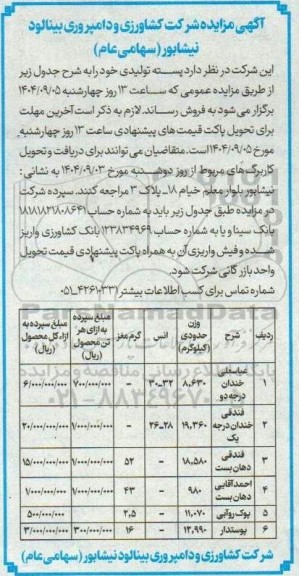 آگهی مزایده شرکت کشاورزی و دامپروری بینالود
نیشابور (سهامی عام)
این شرکت در نظر دارد پسته تولیدی خود را به شرح جدول زیر
از طریق مزایده عمومی که ساعت ۱۳ روز چهارشنبه ۱۴۰۴/۰۹/۰۵
برگزار می شود به فروش رساند. لازم به ذکر است آخرین مهلت
برای تحویل پاکت قیمت های پیشنهادی ساعت ۱۳ روز چهارشنبه
مورخ ۱۴۰۴/۰۹/۰۵ است. متقاضیان می توانند برای دریافت و تحویل
کاربرگ های مربوط از روز دوشنبه مورخ ۱۴۰۴/۰۹/۰۳ به نشانی:
نیشابور بلوار معلم خیام ۱۸ـ پلاک ۳ مراجعه کنند. سپرده شرکت
در مزایده طبق جدول زیر باید به شماره حساب
بانک سینا و یا به شماره حساب ۱۲۳۸۳۴۹۶۹ بانک کشاورزی واریز
شده و فیش واریزی آن به همراه پاکت پیشنهادی قیمت تحویل
واحد بازرگانی شرکت شود.
شماره تماس برای کسب اطلاعات بیشتر: ۴۲۶۱۰۳۳۱-۰۵۱
ردیف شرح وزن حدودی (کیلوگرم) انس گرم مغز مبلغ سپرده به ازای هر تن محصول (ریال) مبلغ سپرده به ازاء کل محصول (ریال)
۱ عباسعلی خندان درجه دو ۸،۶۳۰ ۳۲-۳۰ - ۷۰۰/۰۰۰/۰۰۰ ۶/۰۰۰/۰۰۰/۰۰۰
۲ فندقی خندان درجه یک ۱۹،۳۶۰ ۲۸-۲۶ - ۱/۰۰۰/۰۰۰/۰۰۰ ۲۰/۰۰۰/۰۰۰/۰۰۰
۳ فندقی دهان بست ۱۸،۵۸۰ - ۵۲ ۱/۰۰۰/۰۰۰/۰۰۰ ۱۵/۰۰۰/۰۰۰/۰۰۰
۴ احمدآقایی دهان بست ۹۸۰ - ۴۳ ۱/۰۰۰/۰۰۰/۰۰۰ ۱/۰۰۰/۰۰۰/۰۰۰
۵ پوک روآبی ۱۱،۰۷۰ - ۲،۵ ۵۰۰/۰۰۰/۰۰۰
۶ پوستدار ۱۲،۹۹۰ - ۱۶ ۳۰۰/۰۰۰/۰۰۰ ۳/۰۰۰/۰۰۰/۰۰۰
شرکت کشاورزی و دامپروری بینالود نیشابور (سهامی عام)